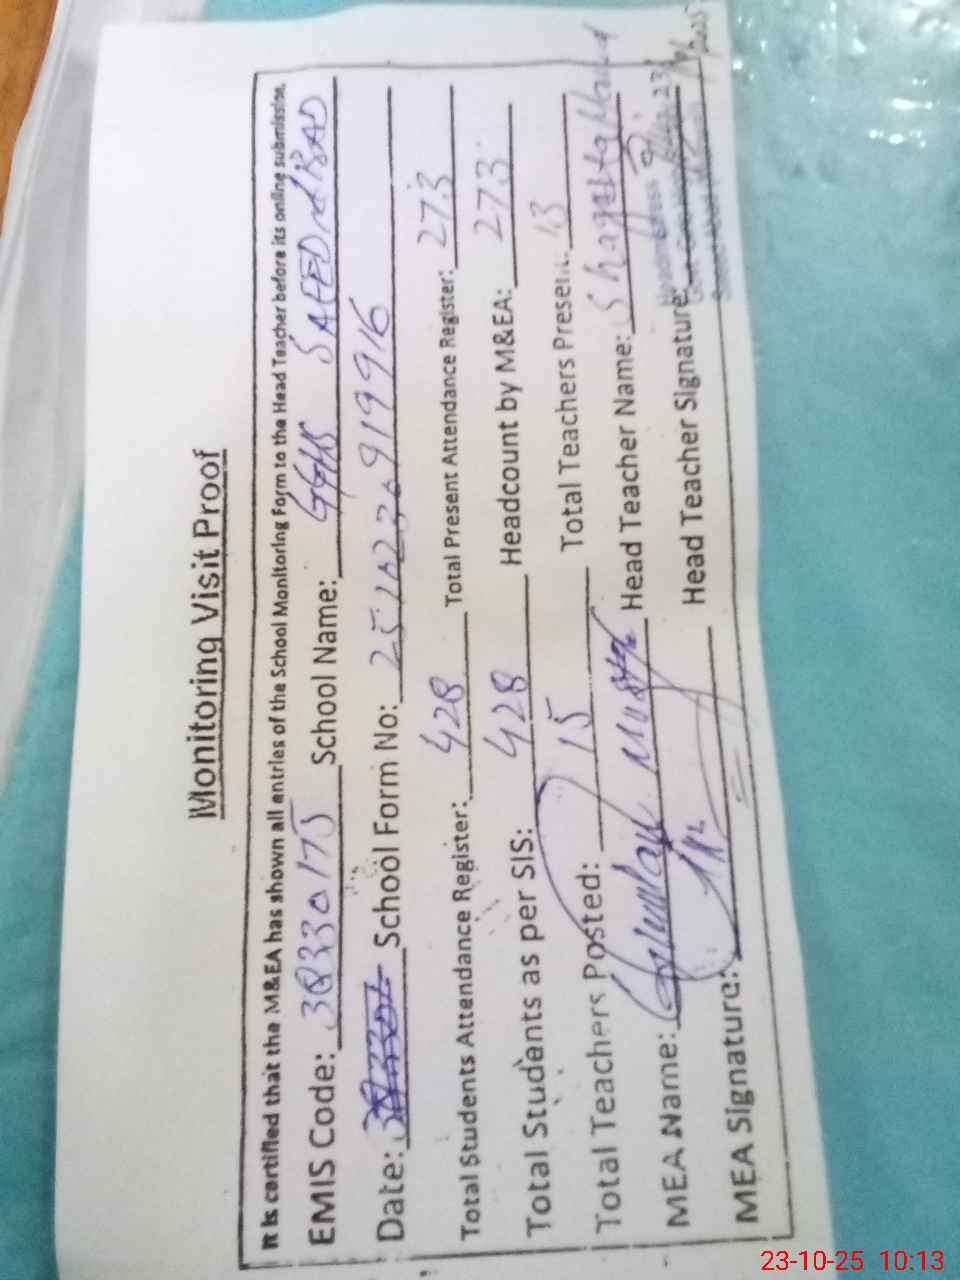 Monitoring Visit Proof
It is certified that the M&EA has shown all entries of the School Monitoring Form to the Head Teacher before its online submission.
EMIS Code: 38330175 School Name: GGHS SAEEDABAD
Date: School Form No: 2510230919916
Total Students Attendance Register: 428 Total Present Attendance Register: 273
Total Students as per SIS: 428 Headcount by M&EA: 273
Total Teachers Posted: 15 Total Teachers Present: 13
MEA Name: Head Teacher Name:
MEA Signature: Head Teacher Signature:
23-10-25 10:13